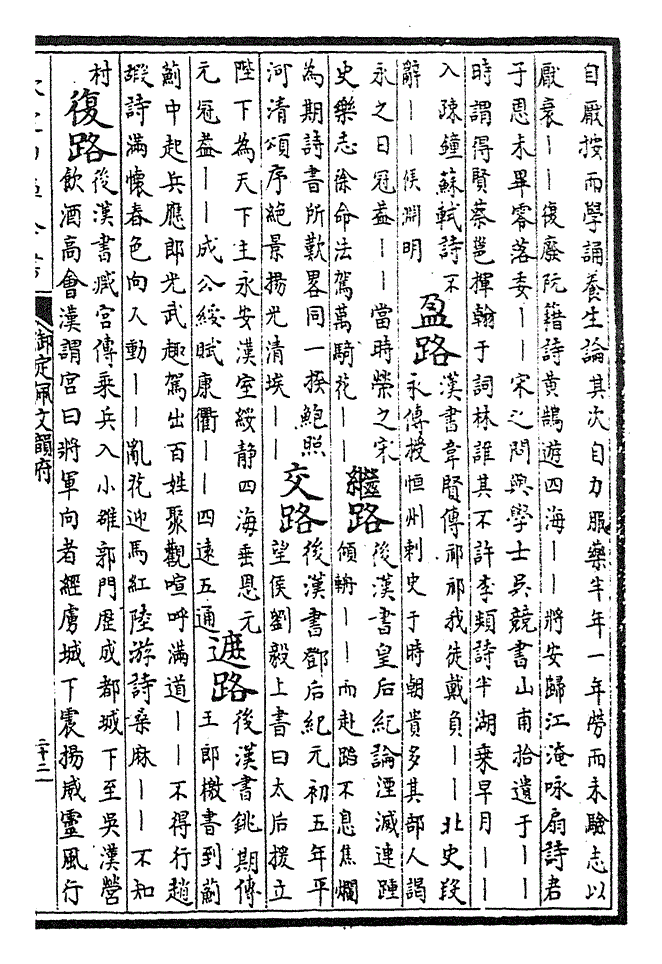 自厭按而學誦養生論其次自力服藥半年一年勞而未驗志以
厭衰｜｜復廢阮籍詩黃鵠遊四海｜｜將安歸江淹咏扇詩君
子恩未畢零落委｜｜宋之問與學士吳競書山甫拾遺于｜｜
時謂得賢蔡邕揮翰于詞林誰其不許李頻詩半湖乗早月｜｜
入疎鐘蘇軾詩不
辭｜｜候淵明
盈路
漢書韋賢傳祁祁我徒戴負｜｜北史段
永傳授恒州刺史于時朝貴多其部人謁
永之日冠盖｜｜當時榮之宋
史樂志徐命法駕萬騎花｜｜
繼路
後漢書皇后紀論湮滅連踵
傾輈｜｜而赴蹈不息焦爛
為期詩書所歎畧同一揆鮑照
河清頌序絶景揚光清埃｜｜
交路
後漢書鄧后紀元初五年平
望侯劉毅上書曰太后援立
陛下為天下主永安漢室綏静四海垂恩元
元冠盖｜｜成公綏賦康衢｜｜四遠五通
遮路
後漢書銚期傳
王郎檄書到薊
薊中起兵應郎光武趣駕出百姓聚觀喧呼滿道｜｜不得行趙
嘏詩滿懷春色向人動｜｜亂花迎馬紅陸游詩桑麻｜｜不知
村
復路
後漢書臧宫傳乗兵入小雒郭門歴成都城下至吳漢營
飲酒高會漢謂宫曰將軍向者經虜城下震揚威靈風行
御定佩文韻府
二十二